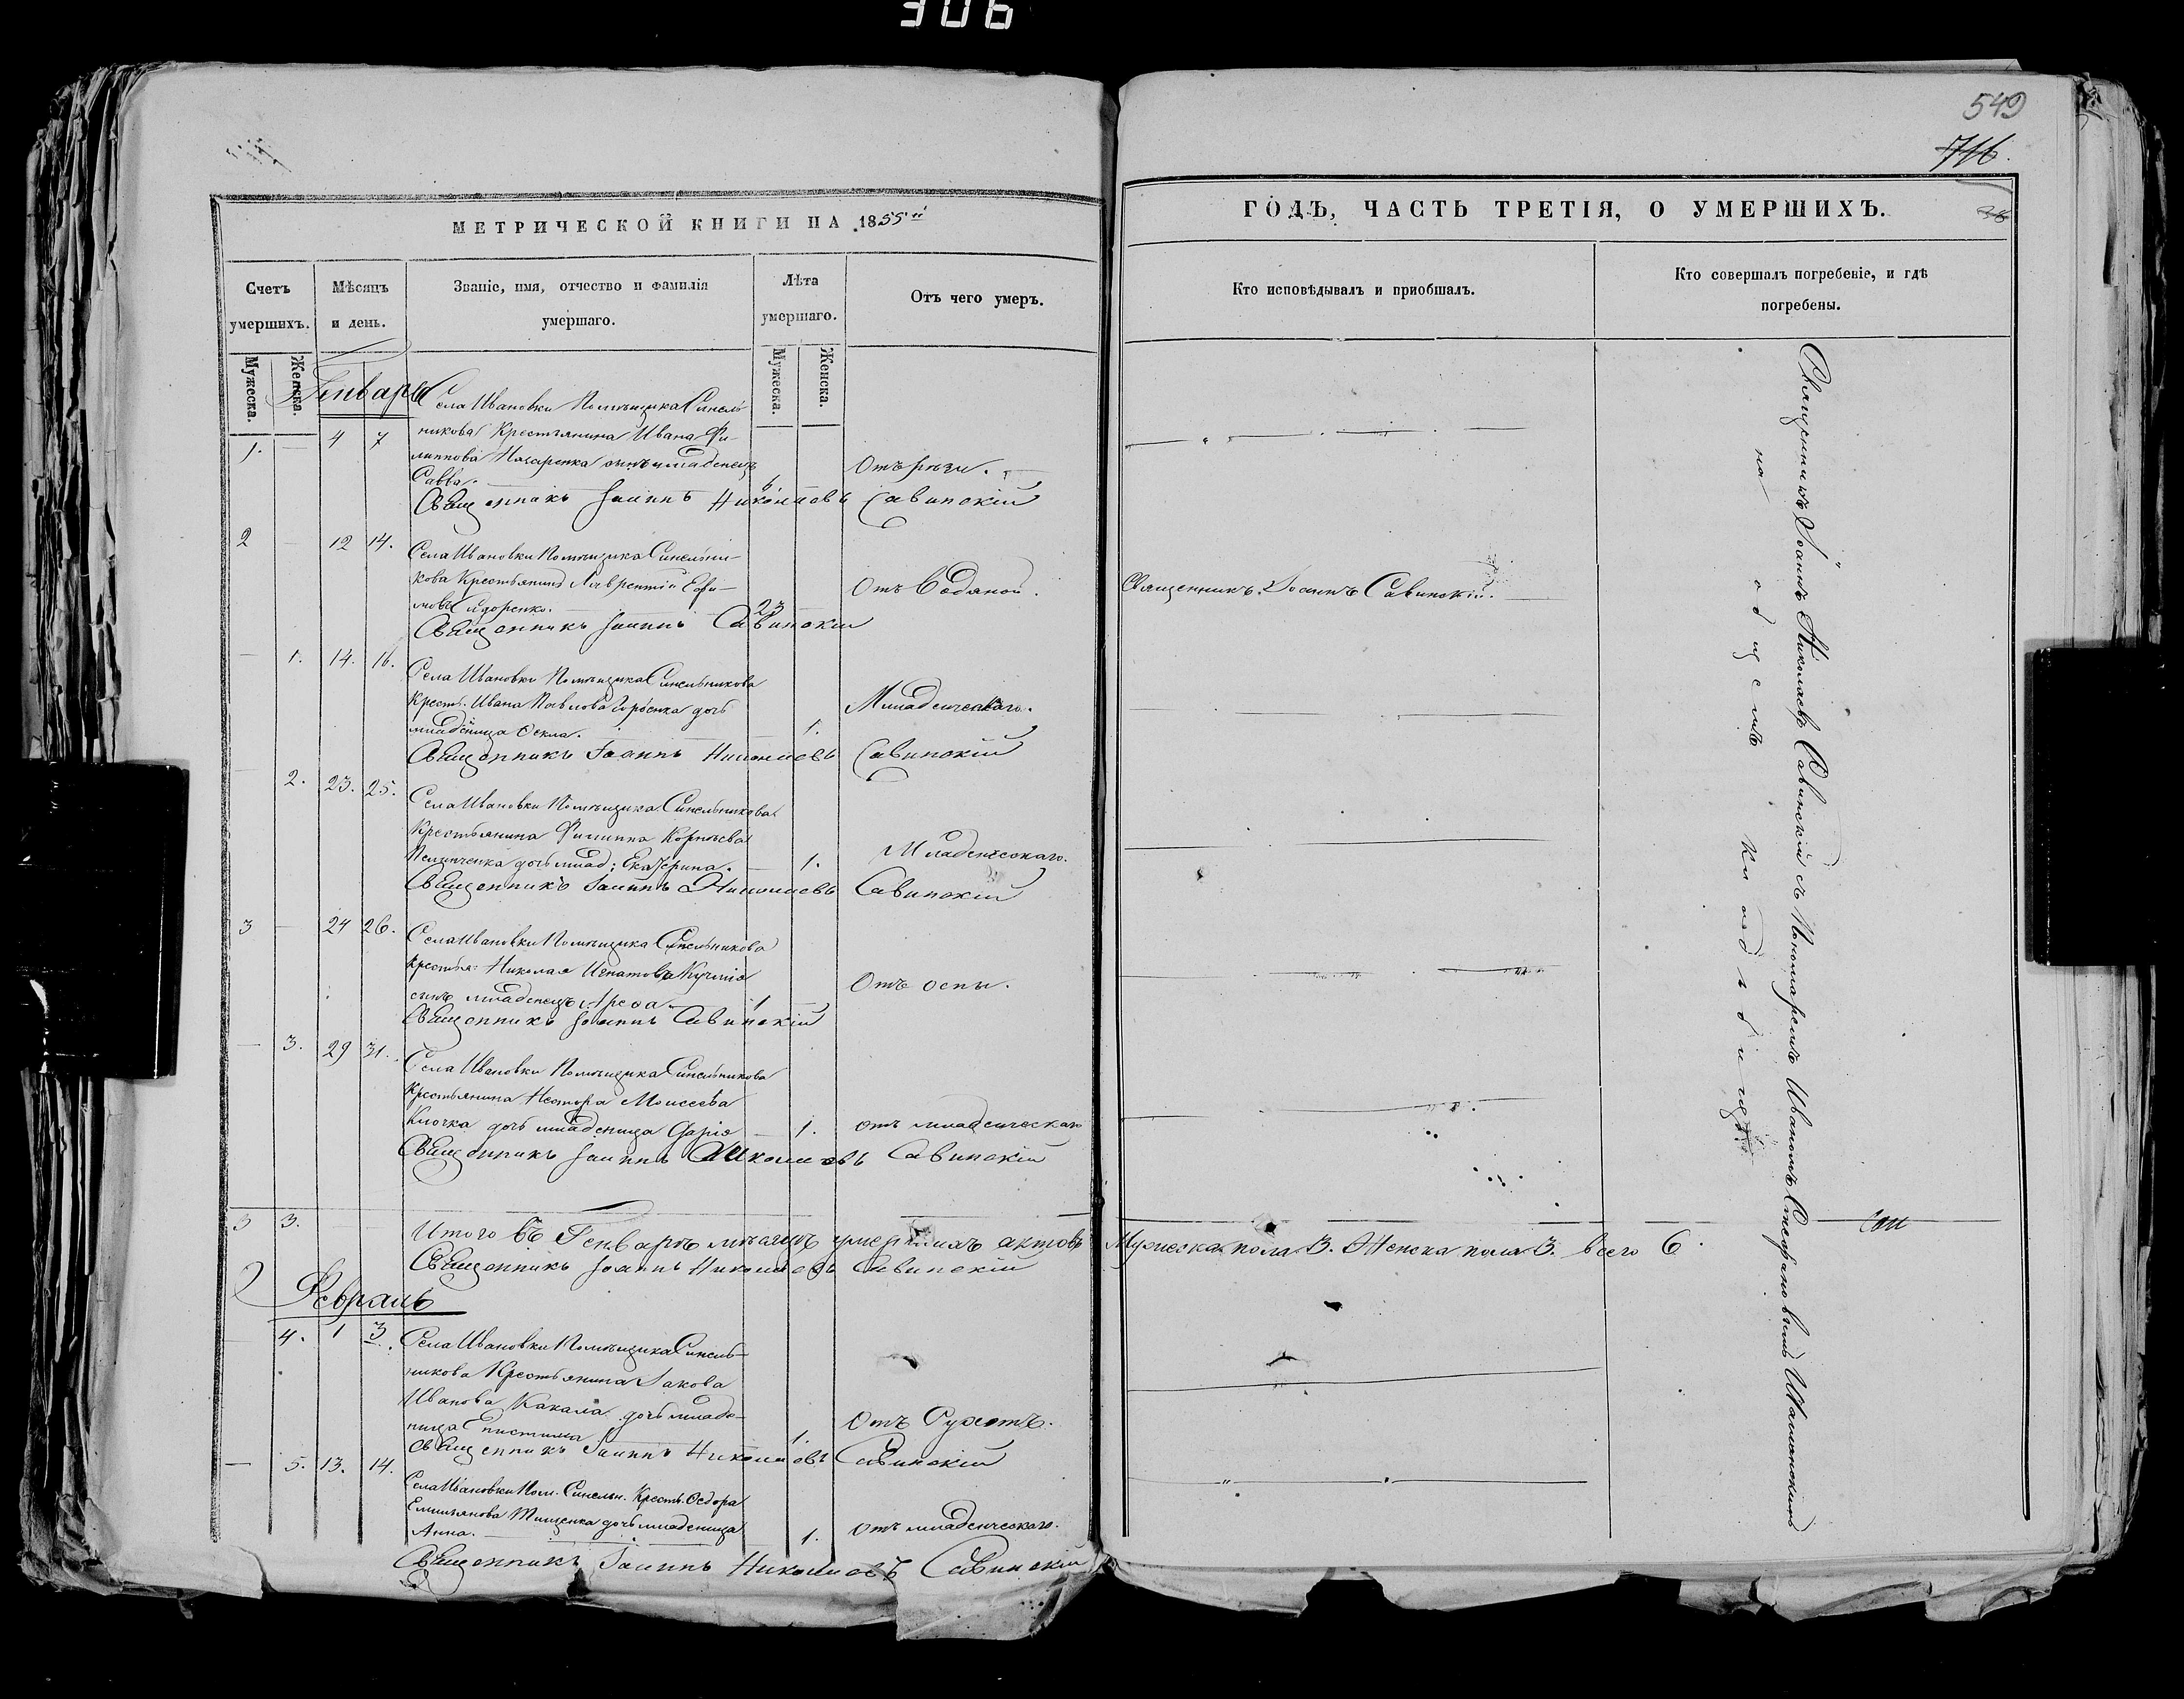 306
549
716.
МЕТРИЧЕСКОЙ КНИГИ НА 1855й
ГОДЪ, ЧАСТЬ ТРЕТІЯ, О УМЕРШИХЪ.
Счетъ умершихъ.
Мѣсяцъ и день.
Званіе, имя, отчество и фамилія умершаго.
Лѣта умершаго.
Отъ чего умеръ.
Кто исповѣдывалъ и пріобщалъ.
Кто совершалъ погребеніе, и гдѣ погребены.
Мужеска.
Женска.
Мужеска.
Женска.
Генварь
Села Ивановки Помѣщика Синель-
1. — 4 7 никова Крестьянина Ивана Фи-
липпова Назаренка сынъ младенецъ
Савва. 6 Отъ
Священникъ Іоаннъ Николаевъ Савинскій
2 — 12 14. Села Ивановки Помѣщика Синельни-
кова Крестьянинъ Лаврентій Ефи-
мовъ Сидоренко. 23 Отъ Водяной. Священникъ Іоаннъ Савинскій.
Священникъ Іоаннъ Савинскій
— 1. 14. 16. Села Ивановки Помѣщика Синельникова
Кресть. Ивана Павлова дочь
младеница Ѳекла. 1. Младенческаго.
Священникъ Іоаннъ Николаевъ Савинскій
2. 23. 25. Села Ивановки Помѣщика Синельникова
Крестьянина Филиппа Корнѣева
Пелипченка дочь млад: Екатерина. 1. Младенческаго.
Священникъ Іоаннъ Николаевъ Савинскій
3 — 24 26. Села Ивановки Помѣщика Синельникова
Крестья: Николая Игнатова
сынъ младенецъ 1 Отъ оспы.
Священникъ Іоаннъ Савинскій
— 3. 29 31. Села Ивановки Помѣщика Синельникова
Крестьянина Нестора Моисеева
Клочка дочь младеница Дарія 1. отъ младенческаго
Священникъ Іоаннъ Николаевъ Савинскій
3 3. Итого въ Генварѣ мѣсяцѣ умершихъ актовъ Мужеска пола 3. Женска пола 3. всего 6.
Священникъ Іоаннъ Николаевъ Савинскій
Февраль
4. 1 3. Села Ивановки Помѣщика Синель-
никова Крестьянина Іакова
Иванова Какала дочь младе-
ница Епистима 1. Отъ Сухотъ.
Священникъ Іоаннъ Николаевъ Савинскій
— 5. 13. 14. Села Ивановки Пом. Синельн. Кресть. Ѳедора
Емилья­нова Тищенка дочь младеница
Анна. 1. Отъ младенческаго.
Священникъ Іоаннъ Николаевъ Савинскій
Священникъ Іоаннъ Николаевъ Савинскій съ Пономаремъ Иваномъ Стефановымъ
на общемъ кладбищѣ